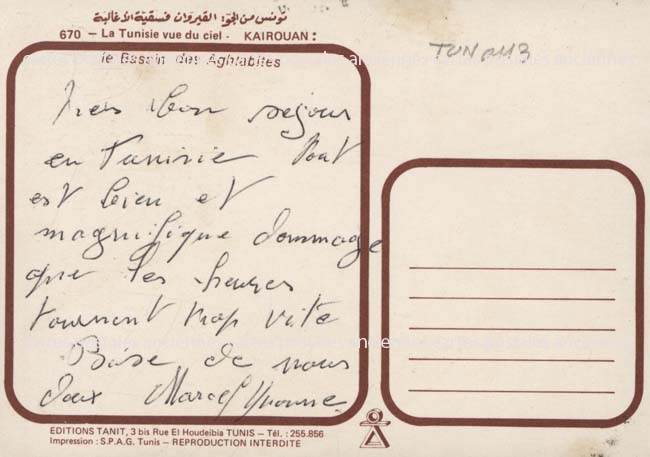 تونس من الجو: القيروان فسقية الأغالبة
670 – La Tunisie vue du ciel - KAIROUAN :
le Bassin des Aghlabites
TUN 0113
Très bon séjour
en Tunisie tout
est bien et
magnifique dommage
que les heures
tournent trop vite
Bise de nous
deux Marcel Yvonne
EDITIONS TANIT, 3 bis Rue El Houdeibia TUNIS – Tél. : 255.856
Impression : S.P.A.G. Tunis – REPRODUCTION INTERDITE